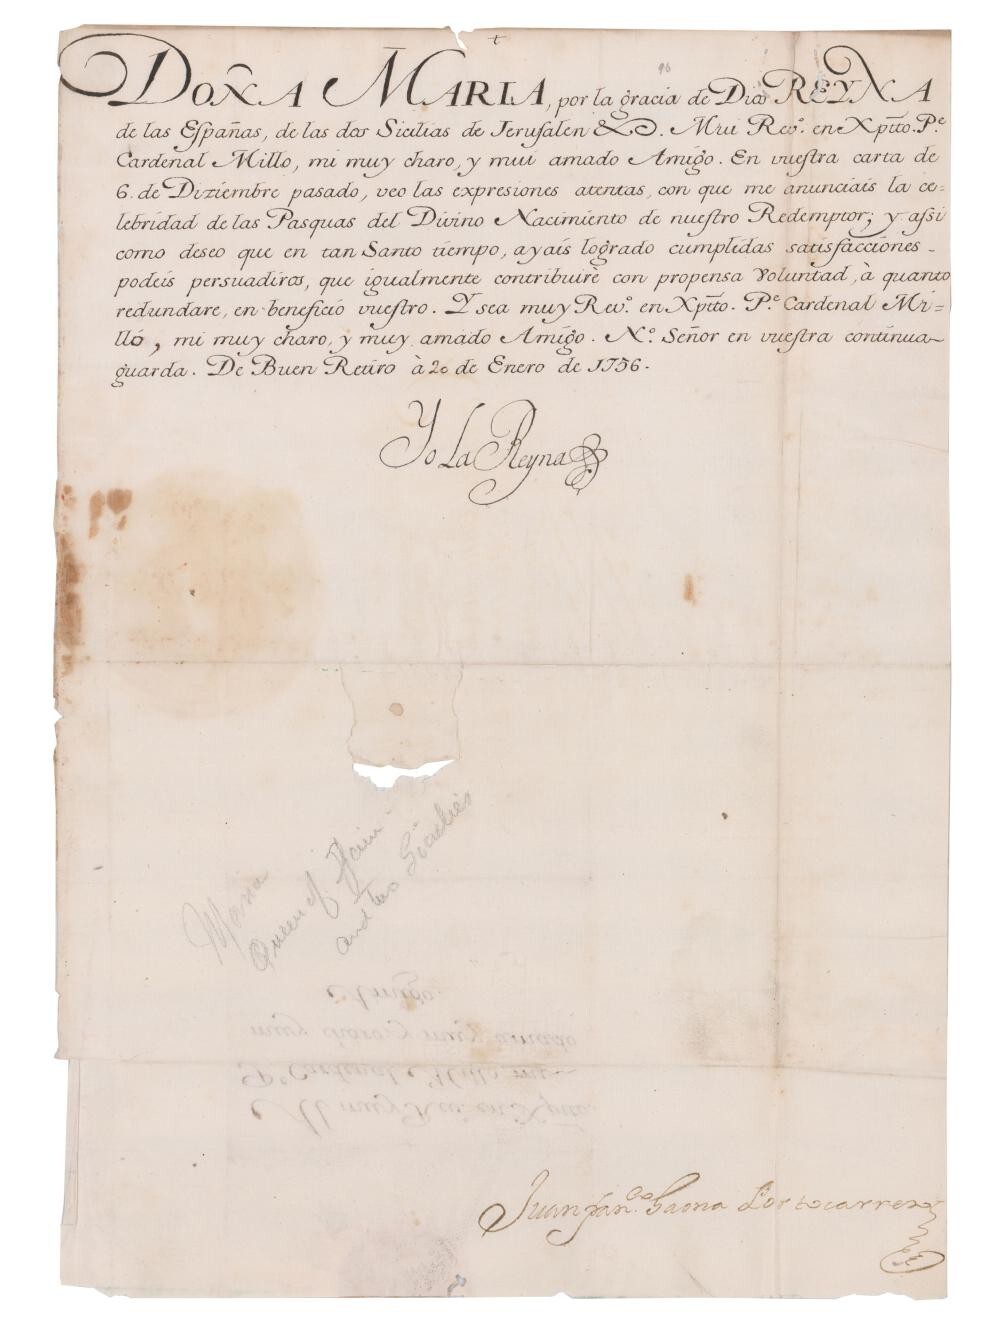 +
96
DOÑA MARIA, por la gracia de Dios REYNA
de las Españas, de las dos Sicilias de Jerusalen &c. Mui Revo. en Xpto. Pe.
Cardenal Millo, mi muy charo, y mui amado Amigo. En vuestra carta de
6. de Diziembre pasado, veo las expresiones atentas, con que me anunciais la ce-
lebridad de las Pasquas del Divino Nacimiento de nuestro Redemptor; y assi
como deseo que en tan Santo tiempo, ayais logrado cumplidas satisfacciones
podeis persuadiros, que igualmente contribuirè con propensa Voluntad, à quanto
redundare, en beneficio vuestro. Y sea muy Revo. en Xpto. Pe. Cardenal Mi-
lló, mi muy charo, y muy amado Amigo. No. Señor en vuestra continua
guarda. De Buen Retiro à 20 de Enero de 1756.
Yo La Reyna
Maria
Queen of Spain
and two Sicilies
Amigo.
muy charo, y muy amado
Pe. Cardenal Millo, mi
Al muy Revo. en Xpto.
Juan Franco. Gaona Portocarrero